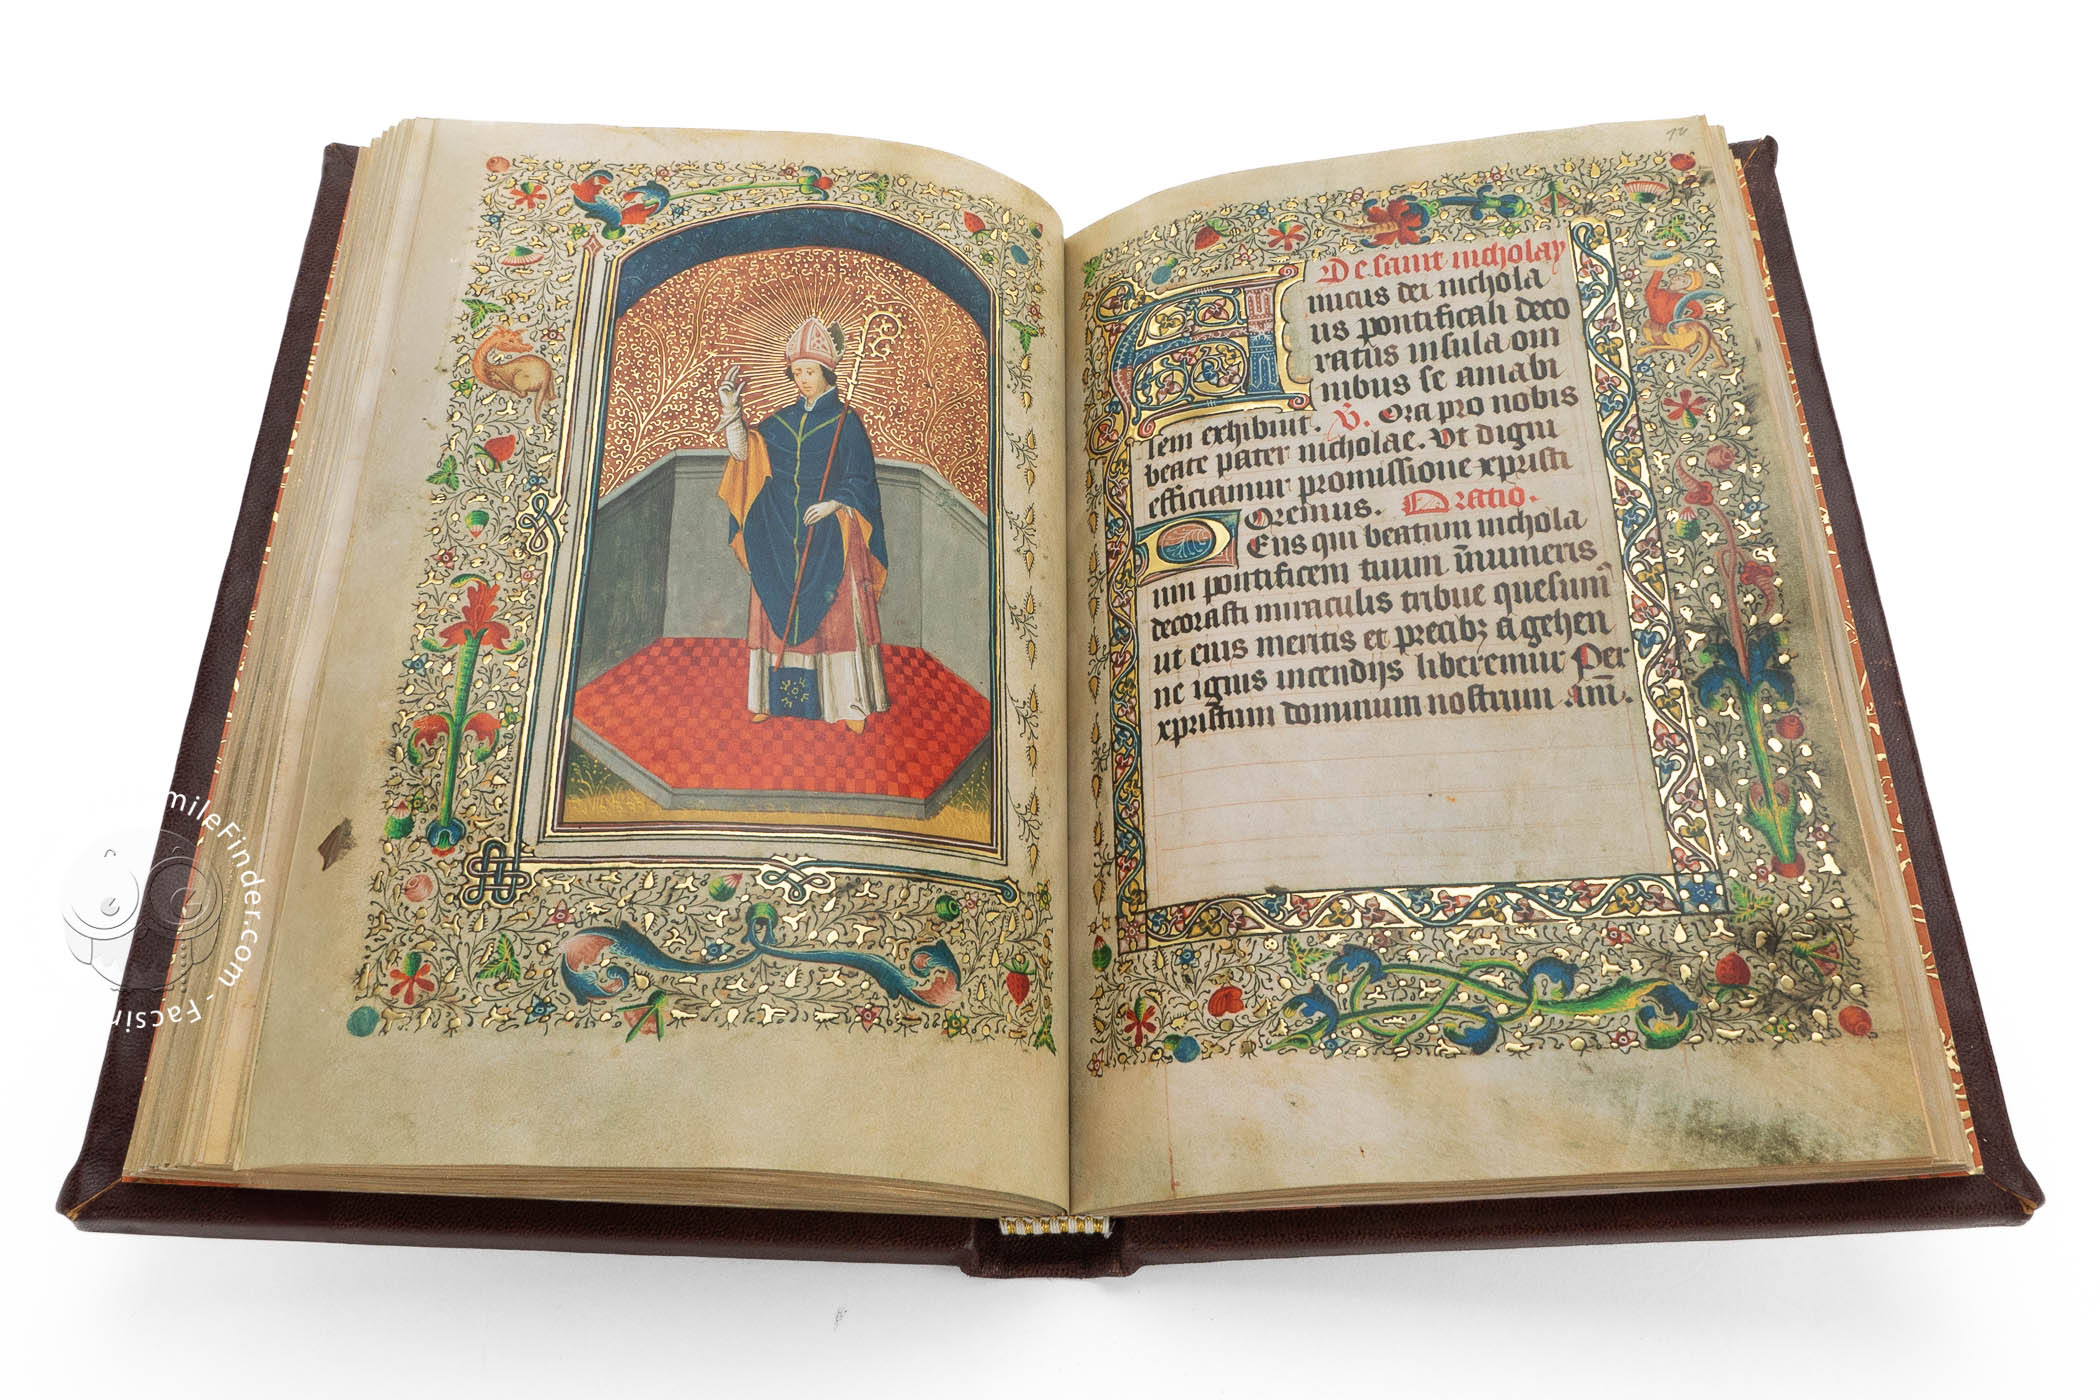 De saint nicholay
Amicus dei nichola
us pontificali deco
ratus insula om
nibus se amabi
lem exhibuit. V. Ora pro nobis
beate pater nicholae. Vt digni
efficiamur promissione xpristi
Oremus. Oratio.
Deus qui beatum nichola
um pontificem tuum īnumeris
decorasti miraculis tribue quesum̄
ut eius meritis et precibꝫ a gehen
ne ignis incendijs liberemur Per
xpristum dominum nostrum am̄.
FacsimileFinder.com